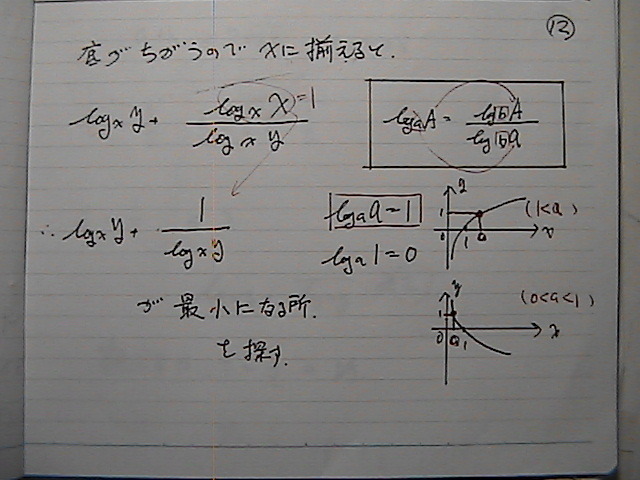 ⑫
底がちがうので xに揃えると.
log_x y + (log_x x)/(log_x y) =1
log_a A = (log_b A)/(log_b a)
∴ log_x y + 1/(log_x y)
log_a a = 1
log_a 1 = 0
y 1 0 1 a x (1<a)
が 最小になる所.
を探す.
y 1 0 a 1 x (0<a<1)